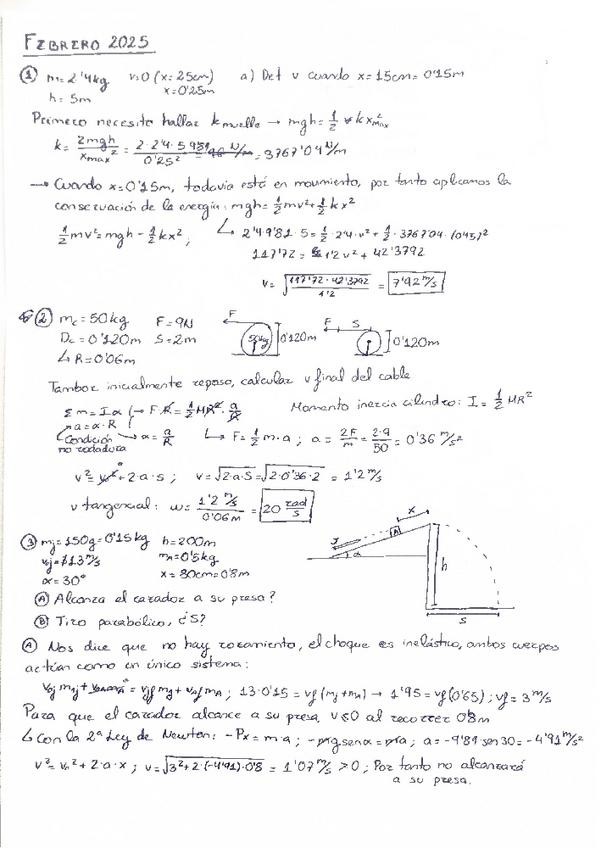 FEBRERO 2025
① m = 2'4kg v=0 (x=25cm) a) Det v cuando x=15cm=0'15m
h = 5m x=0'25m
Primero necesito hallar k muelle → mgh = 1/2 k x²max
k = 2mgh/x max² = 2·2'4·5·9'81/0'25² = 3767'04 N/m
→ Cuando x=0'15m, todavía está en movimiento, por tanto aplicamos la
conservación de la energía: mgh = 1/2 mv² + 1/2 kx²
1/2 mv² = mgh - 1/2 kx² ; ↳ 2'4·9'81·5 = 1/2·2'4·v² + 1/2·3767'04·(0'15)²
117'72 = 1'2v² + 42'3792
v = √(117'72-42'3792/1'2) = 7'92 m/s
② mc = 50kg F = 9N F F S
Dc = 0'120m S = 2m 50kg 0'120m 0'120m
↳ R = 0'06m
Tambor inicialmente reposo, calcular v final del cable
Σm = Iα → F·R = 1/2 MR²·a/R Momento inercia cilindro: I = 1/2 MR²
a = α·R
Condición no rodadura → α = a/R ↳ F = 1/2 m·a ; a = 2F/m = 2·9/50 = 0'36 m/s²
v² = v₀² + 2·a·s ; v = √2·a·S = √2·0'36·2 = 1'2 m/s
v tangencial: ω = 1'2 m/s / 0'06m = 20 rad/s
③ mj = 150g = 0'15kg h = 200m
vj = 13 m/s mA = 0'5kg
α = 30° x = 80cm = 0'8m
x J A α h S
Ⓐ Alcanza el cazador a su presa?
Ⓑ Tiro parabólico, ¿S?
Ⓐ Nos dice que no hay rozamiento, el choque es inelástico, ambos cuerpos
actúan como un único sistema:
v₀j mj + v₀A mA = vfj mj + vfA mA ; 13·0'15 = vf (mj + mA) → 1'95 = vf(0'65) ; vf = 3 m/s
Para que el cazador alcance a su presa, v≤0 al recorrer 0'8m
↳ Con la 2ª Ley de Newton: -Px = m·a ; -mg sen α = ma ; a = -9'81·sen30 = -4'91 m/s²
v² = v₀² + 2·a·x ; v = √3²+2·(-4'91)·0'8 = 1'07 m/s > 0 ; Por tanto no alcanzará
a su presa.